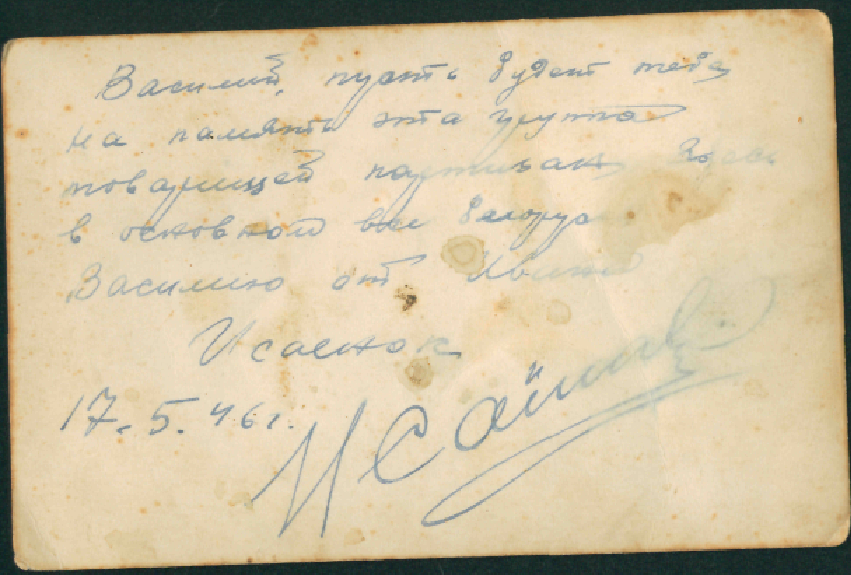 Василий, пусть будет тебе
на память эта группа
товарищей партизан Здесь
в основном все белорус
Василию от Ивана
Исаенок
17.5.46г.